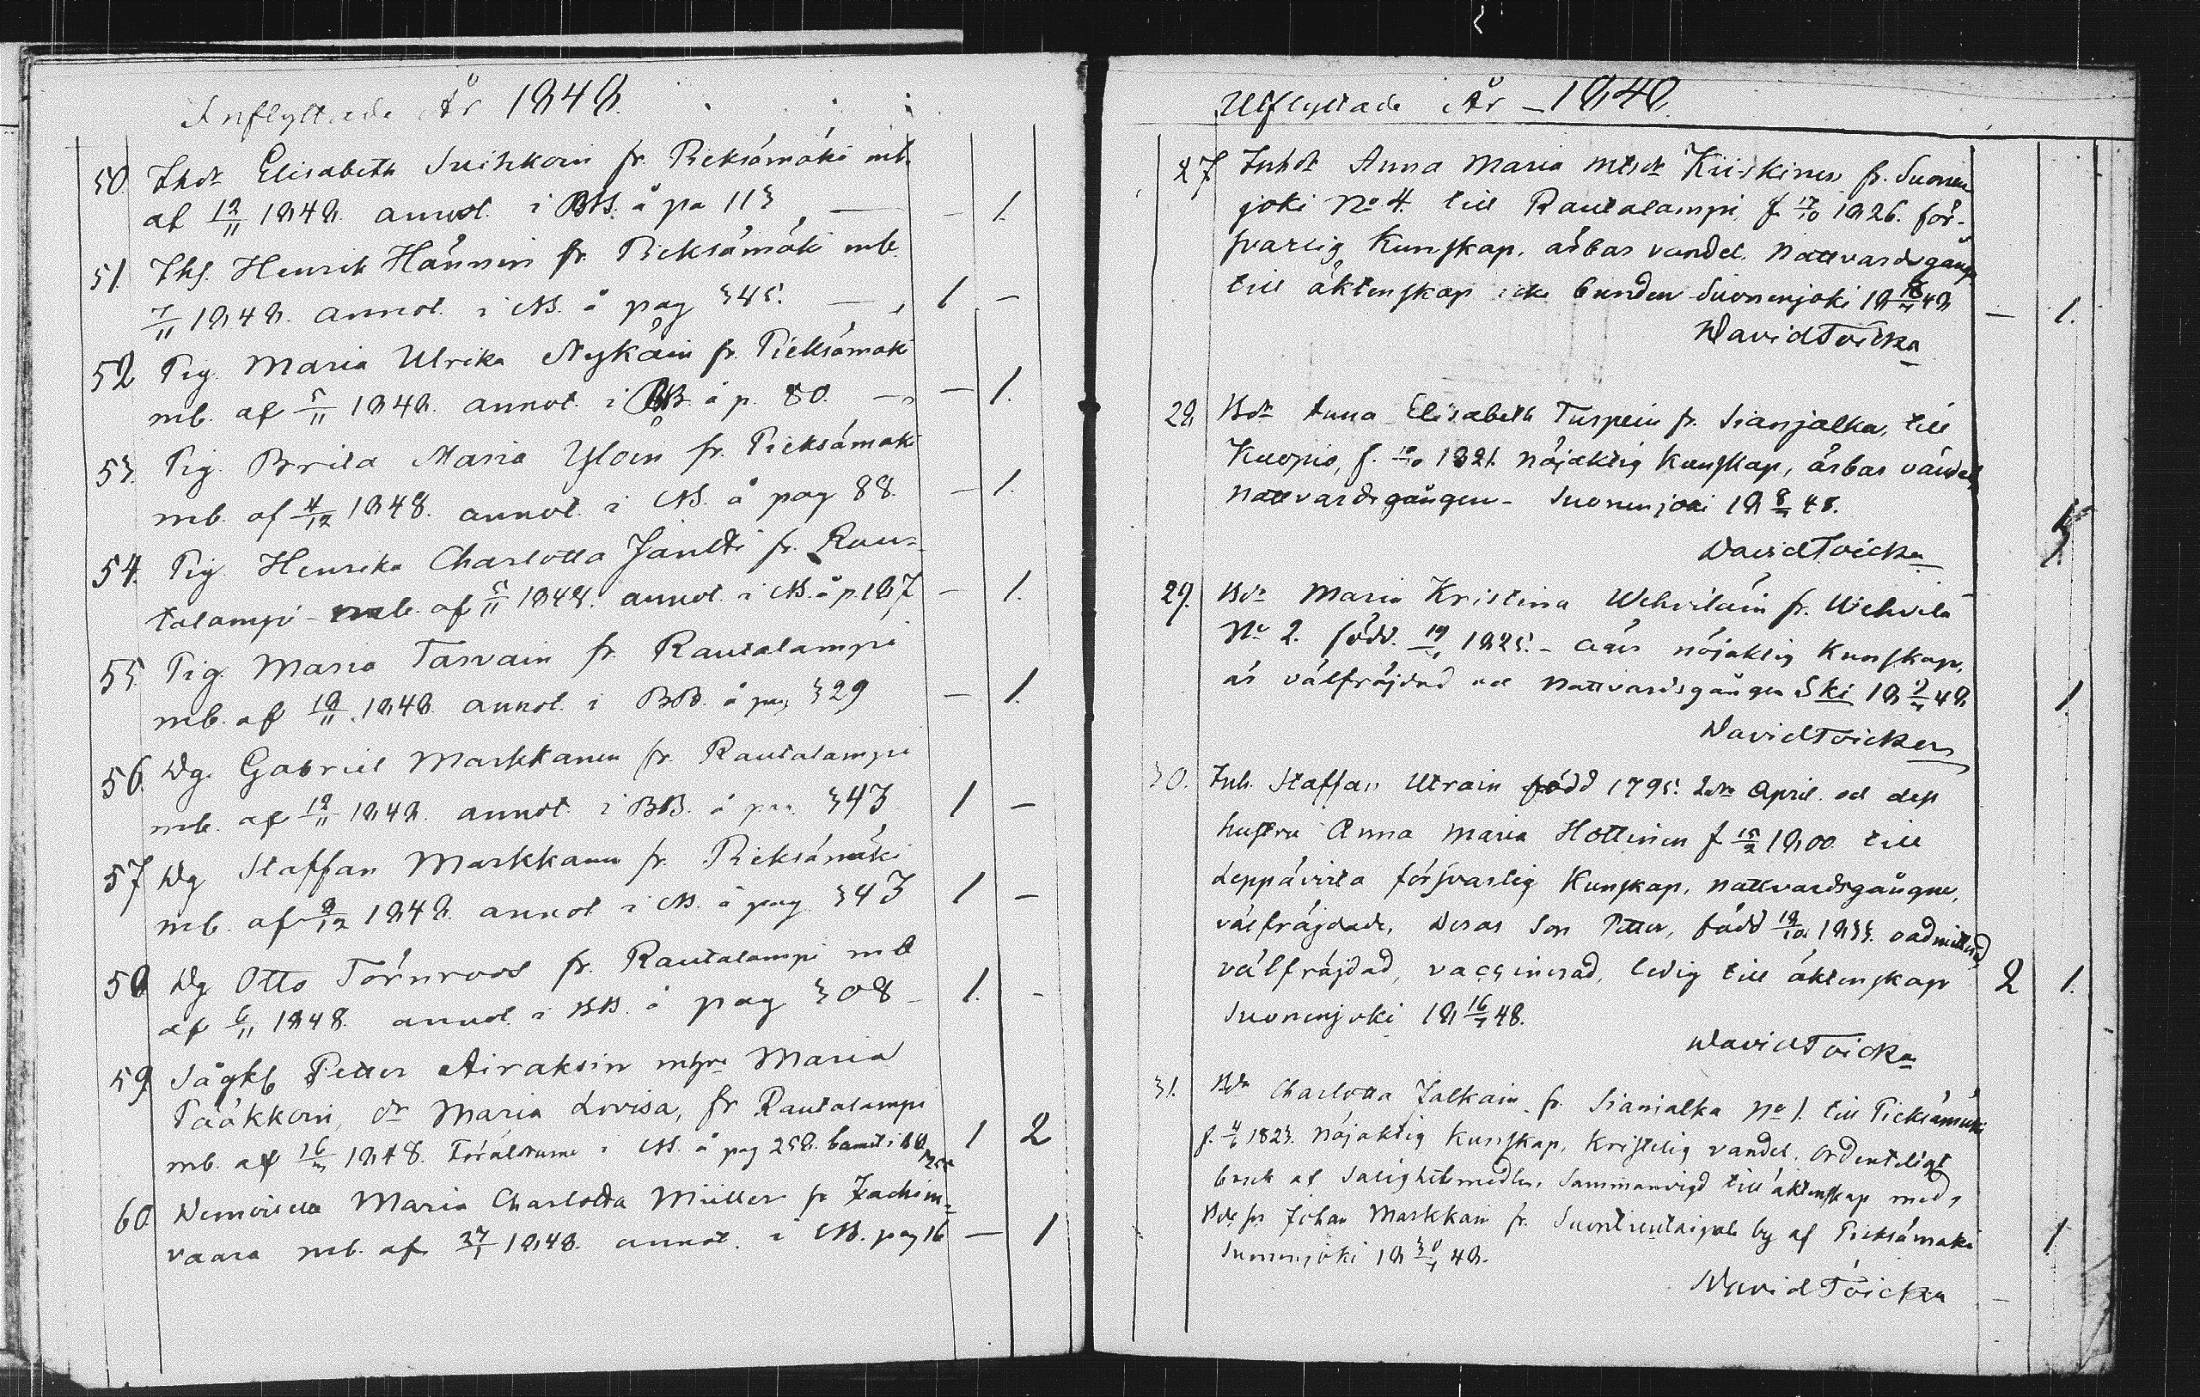 Inflyttade År 1848.
50. Ihdr Elisabeth Suihkoin fr. Pieksämäki mb.
af 12/11 1848. annot. i BB. å pa 113 — — 1.
51. Ihs. Henrik Hänninen fr. Pieksämäki mb.
7/11 1848. annot. i NB. å pag 345. — 1 —
52 Pig. Maria Ulrika Nykäin fr. Pieksämäki
mb. af 5/11 1848. annot. i BB. å p. 80. — — 1.
53. Pig. Brita Maria Ylöin fr. Pieksämäki
mb. af 4/12 1848. annot. i NB. å pag 88. — 1.
54. Pig. Henrika Charlotta Jäntti fr. Rau-
talampi mb. af 5/11 1848. annot. i NB. å p. 187 — 1.
55. Pig. Maria Tarvain fr. Rautalampi
mb. af 18/11 1848. annot. i BB. å pag 329 — 1.
56. Dg. Gabriel Markkanen fr. Rautalampi
mb. af 12/11 1848. annot. i BB. å pag 343 1 —
57 Dg Staffan Markkanen fr. Pieksämäki
mb. af 9/12 1848. annot i NB. å pag 343 1 —
58 Dg Otto Törnroos fr. Rautalampi mb
af 6/11 1848. annot. i BB. å pag 308 — 1. -
59. Sågkl Petter Airaksin m hu Maria
Pääkköin, dr Maria Lovisa, fr Rautalampi
mb. af 16/ 1848. Föräldrarne i NB. å pag 258. barnet i BB 1 2
60. Demoiselle Maria Charlotta Müller fr Jachim-
vaara mb. af 27/1 1848. annot. i NB. pag 16 — 1
Utflyttade År — 1848.
27 Inhdr Anna Maria Mtsdr Kiiskinen fr. Suonen-
joki No 4. till Rautalampi, f. 17/10 1826. för-
svarlig Kunskap, ärbar vandel. Nattvardsgången
till äktenskap icke bunden Suonenjoki 18 48
— 1.
David Toicka
28. Bdr Anna Elisabeth Turpein fr. Sianjalka, till
Kuopio, f. 1821. nöjaktig Kunskap, ärbar vandel,
Nattvardsgången - Suonenjoki 18 8/ 48.
David Toicka
1.
29. Bdr Maria Kristina Wehviläin fr. Wehvilä
No 2. född. 19/ 1825. - äger nöjaktig Kunskap,
är välfräjdad och Nattvardsgången Ski 18 48 1.
David Toicka
30. Inh. Staffan Utrain född 1795. 2dra April. och dess
hustru Anna Maria Hottinen f 15/2 1800 till
Leppävirta försvarlig Kunskap, nattvardsgångne,
välfräjdade. Deras Son Petter, född 19/10 1833. oadmitterad
välfräjdad, vaccinerad, ledig till äktenskap 2 1.
Suonenjoki 18 16/ 48.
David Toicka
31. Bdr Charlotta Jalkain fr. Sianjalka No 1. till Pieksämäki
f. 1823. nöjaktig Kunskap, Kristelig vandel. Ordenteligt
bruk af Salighetsmedlen, Sammanvigd till äktenskap med
Johan Markkain fr. by af Pieksämäki 1
Suonenjoki 18 30/ 48.
David Toicka —